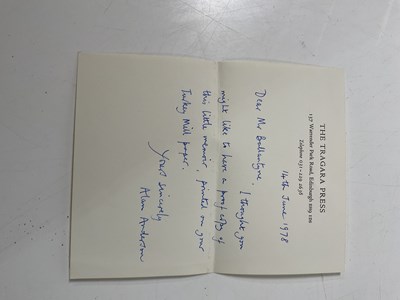 THE TRAGARA PRESS
137 Warrender Park Road, Edinburgh EH9 1DS
Telephone 031-229 2636
14th June 1978
Dear Mr Ballantyne,
I thought you
might like to have a proof copy of
this little memoir, printed on your
Turkey Mill paper.
Yours sincerely
Alan Anderson